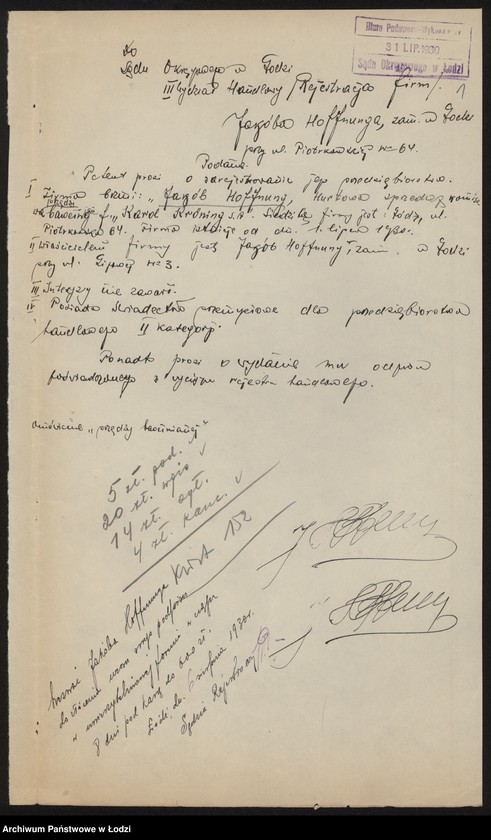 Biuro Podawczo-Wykonawcze
31 LIP. 1930
Sądu Okręgowego w Łodzi
1
Do
Sądu Okręgowego w Łodzi
III Wydział Handlowy /Rejestracja firm/.
Jakóba Hoffnunga, zam. w Łodzi
przy ul. Piotrkowskiej № 64.
Podanie
Petent prosi o zarejestrowanie jego przedsiębiorstwa.
I Firma brzmi: "Jakób Hoffnung, Hurtowa sprzedaż
przędzy
bawełnianej f. "Karol Kröning s.A. Siedzibą firmy jest Łódź, ul.
Piotrkowska 64. Firma istnieje od dn. 1 lipca 1930.
II Właścicielem firmy jest Jakób Hoffnung, zam. w Łodzi
przy ul. Lipowej № 3.
III Intercyzy nie zawarł.
IV Posiada świadectwo przemysłowe dla przedsiębiorstwa
handlowego II kategorji.
Ponadto prosi o wydanie mu odpisu
poświadczonego z wyciągu rejestru handlowego.
"przędzy bawełnianej"
5 zł. pod.
20 zł. wpis
14 zł. ogł.
4 zł. kanc.
Kwit 152
Wezwać Jakóba Hoffnunga
do złożenia wzoru swego podpisu
w uwierzytelnionej formie w ciągu
8 dni pod karą do 600 zł.
Łódź, dn. 6 sierpnia 1930r.
Sędzia Rejestrowy
Archiwum Państwowe w Łodzi